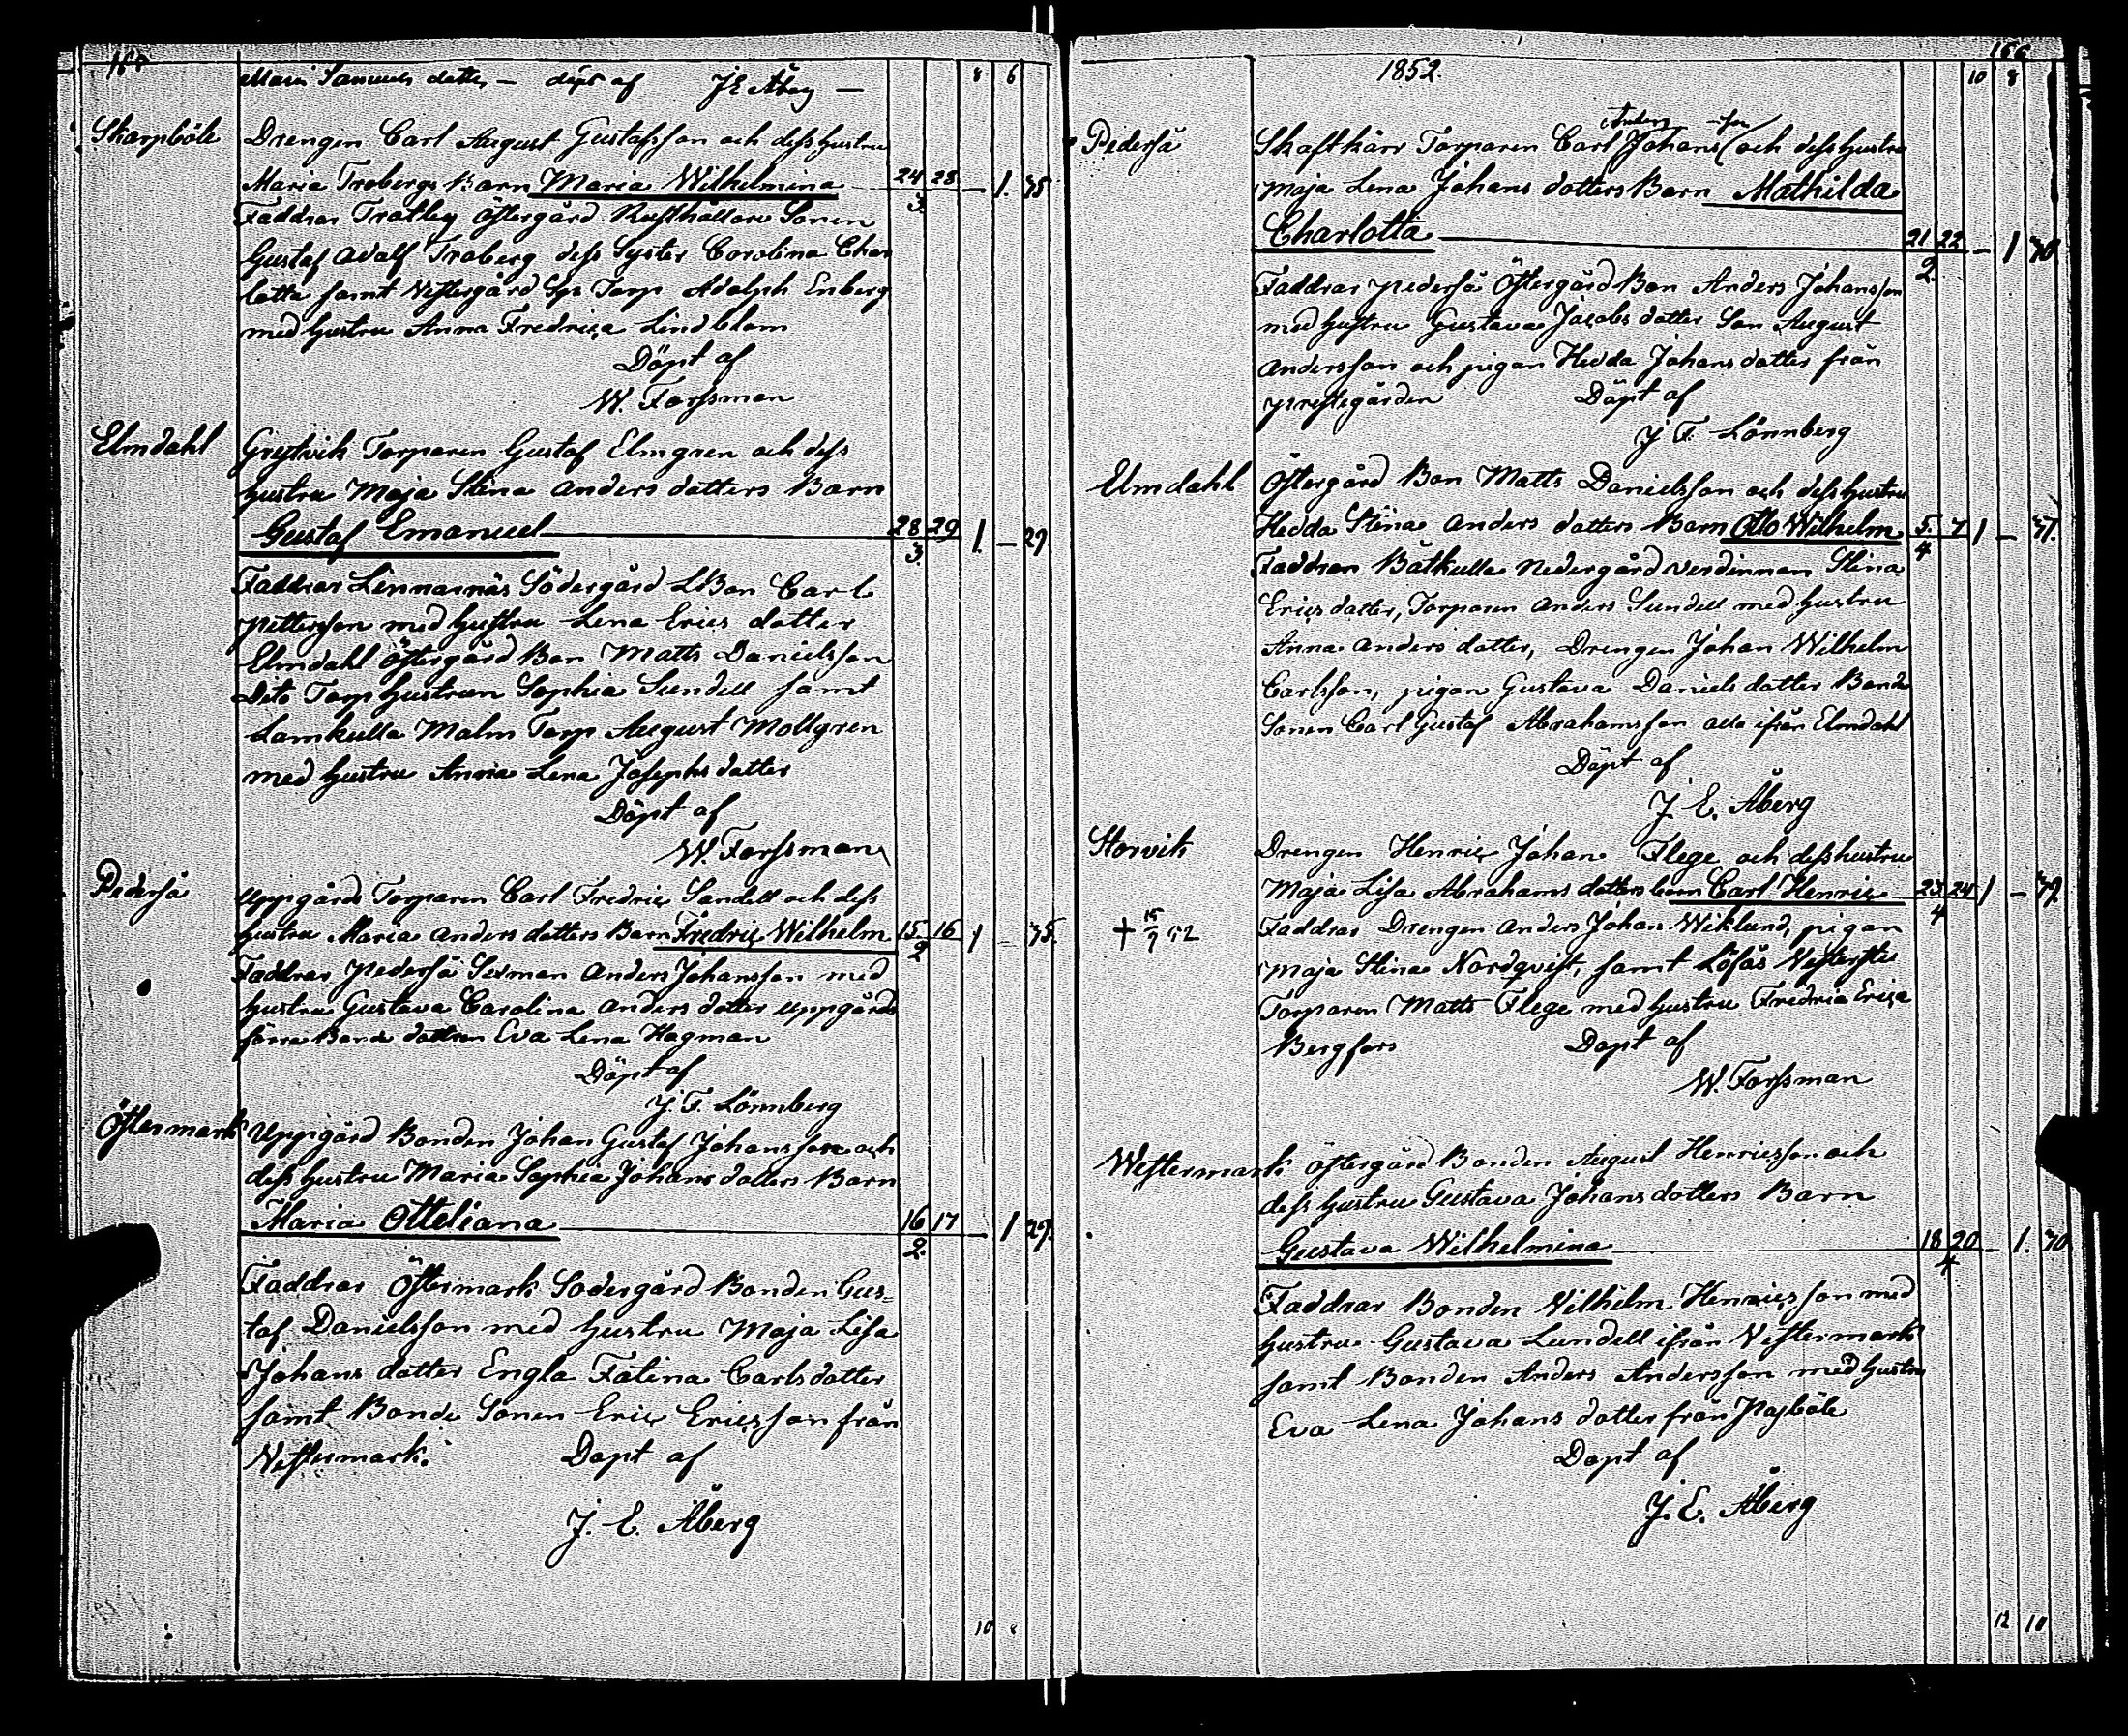 Maria Samuels dotter — döpt af J E Åberg — 8 6
Skarpböle Drengen Carl August Gustafsson och dess hustru
Maria Trobergs Barn Maria Wilhelmina 24/3 28 — 1. 35
Faddrar Trotby Östergård Rusthållare Sonen
Gustaf Adolf Troberg dess Syster Carolina Char
lotta samt Vestergård Torp Adolph Enberg
med hustru Anna Fredrica Lindblom
Döpt af
W. Forssman
Elmdahl Torparen Gustaf Elmgren och dess
hustru Maja Stina Anders dotters Barn
Gustaf Emanuel 28/3 29 1. — 29
Faddrar Lemnarnäs Södergård Bon Carl
Pettersson med hustru Lena Erics dotter
Elmdahl Östergård Bon Matts Danielsson
Dito Torp hustrun Sophia Sundell samt
Lamkulla Malm Torp August Mollgren
med hustru Anna Lena Josephs dotter
Döpt af
W. Forssman
Pederså Uppgårds Torparen Carl Fredric Sandell och dess
hustru Maria Anders dotters Barn Fredric Wilhelm 15/2 16 1 — 35.
Faddrar Pederså Sexman Anders Johansson med
hustru Gustava Carolina Anders dotter Uppgårds
förra Bonde dottren Eva Lena Hagman
Döpt af
J. F. Lönnberg
Östermark Uppgård Bonden Johan Gustaf Johansson och
dess hustru Maria Sophia Johans dotters Barn
Maria Otteliana 16/2. 17 — 1 29.
Faddrar Östermark Södergård Bonden Gus=
taf Danielsson med hustru Maja Lisa
Johans dotter Engla Fatina Carlsdotter
samt Bonde Sonen Eric Ericsson från
Vestermark. Döpt af
J. E. Åberg
10 8
166
1852. 10 8
Anders son
Pederså Skaftkärr Torparen Carl Johans och dess hustru
Maja Lena Johans dotters Barn Mathilda
Charlotta 21/2. 22 — 1 40
Faddrar Pederså Östergård Bon Anders Johansson
med hustru Gustava Jacobs dotter Son August
Andersson och pigan Hedda Johans dotter från
Prestegården Döpt af
J. F. Lönnberg
Elmdahl Östergård Bon Matts Danielsson och dess hustru
Hedda Stina Anders dotters Barn Otto Wilhelm 5./4 7 1 —
Faddrar Båtkulla Nedergård Verdinnan Stina
Erics dotter, Torparen Anders Sundell med hustru
Anna Anders dotter, Drengen Johan Wilhelm
Carlsson, pigan Gustava Daniels dotter Bonde
Sonen Carl Gustaf Abrahamsson alla ifrån Elmdahl
Döpt af
J. E. Åberg
Storvik Drengen Henric Johan Flege och dess hustru
Maja Lisa Abrahams dotters barn Carl Henric 23/4 24 1 —
† 15/7 52 Faddrar Drengen Anders Johan Wiklund, pigan
Maja Stina Nordqvist, samt Löfås
Torparen Matts Flege med hustru Fredrica Erica
Bergfors Döpt af
W. Forssman
Westermark Östergård Bonden August Henricsson och
dess hustru Gustava Johans dotters Barn
Gustava Wilhelmina 18/4 20 — 1. 40
Faddrar Bonden Vilhelm Henricsson med
hustru Gustava Lundell ifrån Vestermark
samt Bonden Anders Andersson med hustru
Eva Lena Johans dotter från Pajböle
Döpt af
J. E. Åberg
12 10